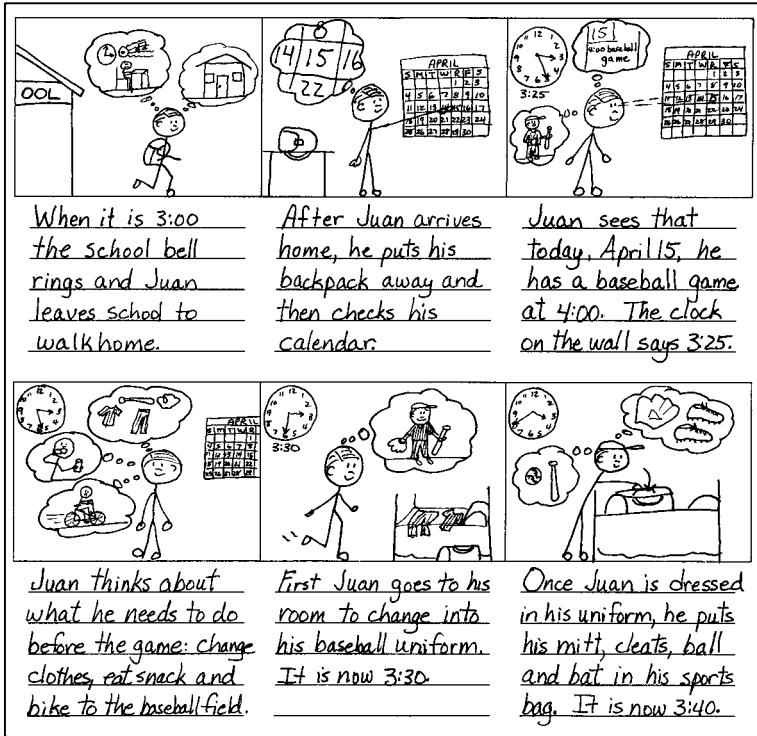 OOL
14 15 16
22
APRIL
S M T W R F S
1 2 3
4 5 6 7 8 9 10
11 12 13 14 15 16 17
18 19 20 21 22 23 24
25 26 27 28 29 30
12 1 2 3 4 5 6 7 8 9 10 11
3:25
15
4:00 baseball
game
APRIL
S M T W R F S
1 2 3
4 5 6 7 8 9 10
11 12 13 14 15 16 17
18 19 20 21 22 23 24
25 26 27 28 29 30
When it is 3:00
the school bell
rings and Juan
leaves school to
walk home.
After Juan arrives
home, he puts his
backpack away and
then checks his
calendar.
Juan sees that
today, April 15, he
has a baseball game
at 4:00. The clock
on the wall says 3:25.
12 1 2 3 4 5 6 7 8 9 10 11
APRIL
S M T W R
1
4 5 6 7 8
12 1 2 3 4 5 6 7 8 9 10 11
3:30
12 1 2 3 4 5 6 7 8 9 10 11
Juan thinks about
what he needs to do
before the game: change
clothes, eat snack and
bike to the baseball field.
First Juan goes to his
room to change into
his baseball uniform.
It is now 3:30.
Once Juan is dressed
in his uniform, he puts
his mitt, cleats, ball
and bat in his sports
bag. It is now 3:40.